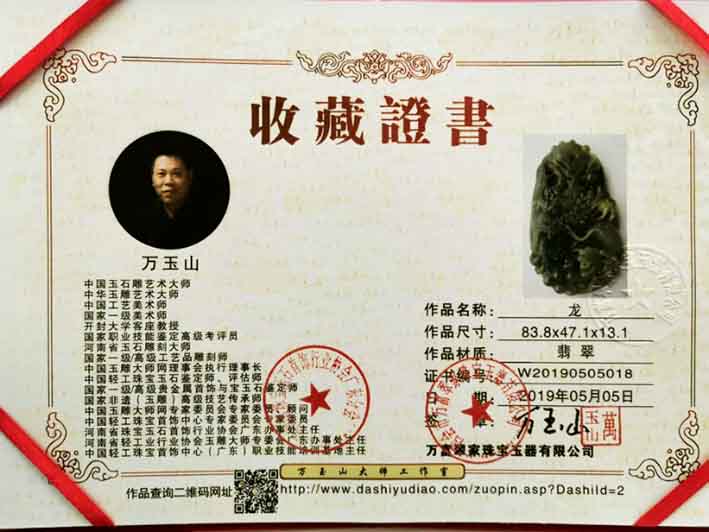 收藏證書
万玉山
中国玉石雕艺术大师
中华玉雕艺术大师
中国工艺美术师
国家一级美术师
开封大学客座教授
国家职业技能鉴定高级考评员
河南省玉石雕刻大师
国家一级/高级工艺品雕刻师
中国玉雕大师网理事会执行理事长
中国轻工珠宝玉石鉴定师、评估师
国家一级/高级贵金属首饰与宝玉石鉴定师
国家非遗(玉雕)高级技艺传承师
中国玉雕大师网专家委员会专家委员、顾问
中国轻工珠宝首饰中心专家委员会专家委员
河南省珠宝玉石首饰行业协会广东办事处主任
河南省轻工业行业协会玉雕大师专委会广东办事处主任
中国轻工珠宝首饰中心(广东)职业技能培训基地主任
作品名称: 龙
作品尺寸: 83.8x47.1x13.1
作品材质: 翡翠
证书编号: W20190505018
日 期: 2019年05月05日
签 章: 万玉山
萬玉山
万富翠家珠宝玉器有限公司
万玉山大师工作室
作品查询二维码网址
http://www.dashiyudiao.com/zuopin.asp?DashiId=2